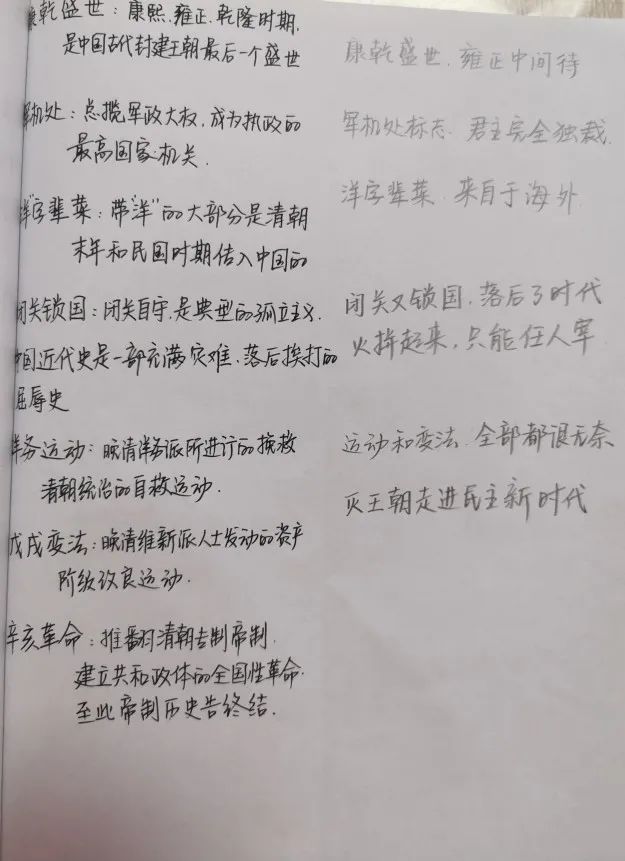 康乾盛世：康熙、雍正、乾隆时期，
是中国古代封建王朝最后一个盛世
军机处：总揽军政大权，成为执政的
最高国家机关．
"洋"字辈菜：带"洋"的大部分是清朝
末年和民国时期传入中国的
闭关锁国：闭关自守，是典型的孤立主义．
中国近代史是一部充满灾难、落后挨打的
屈辱史
洋务运动：晚清洋务派所进行的挽救
清朝统治的自救运动．
戊戌变法：晚清维新派人士发动的资产
阶级改良运动．
辛亥革命：推翻清朝专制帝制．
建立共和政体的全国性革命．
至此帝制历史告终结．
康乾盛世，雍正中间待
军机处标志，君主完全独裁．
洋字辈菜，来自于海外．
闭关又锁国，落后了时代
火拼起来，只能任人宰
运动和变法，全部都很无奈
灭王朝走进民主新时代